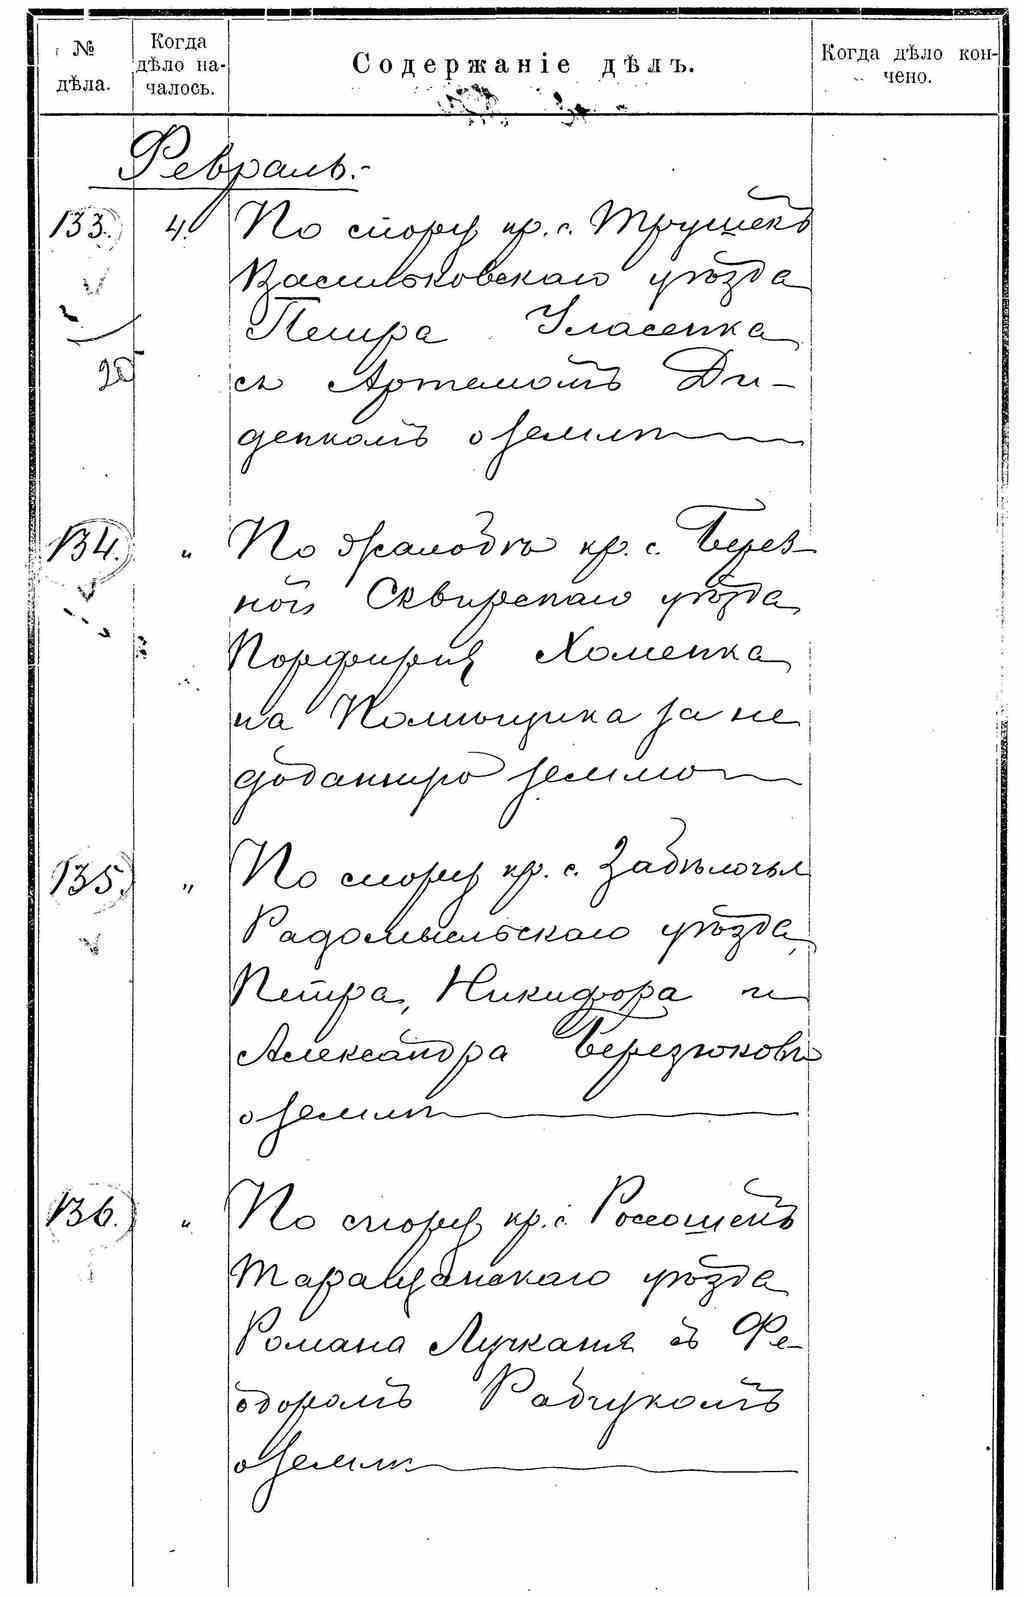 № дѣла.
Когда дѣло на-
чалось.
Содержаніе дѣлъ.
Когда дѣло кон-
чено.
Февраль.-
133. 4. По спору кр. с. Трушекъ
Васильковскаго уѣзда
Петра Уласенка
20
съ Артемомъ Ди-
денкомъ о землѣ
134. „ По жалобѣ кр. с. Берез-
ной Сквирскаго уѣзда
Порфирія Хоменка
на Помѣщика за не
доданную землю
135. „ По спору кр. с. Забѣлочья
Радомысльскаго уѣзда,
Петра, Никифора и
Александра Березюковъ
о землѣ
136. „ По спору кр. с. Росошекъ
Таращанскаго уѣзда
Романа Лучканя съ Фе-
доромъ Рабчукомъ
о землѣ